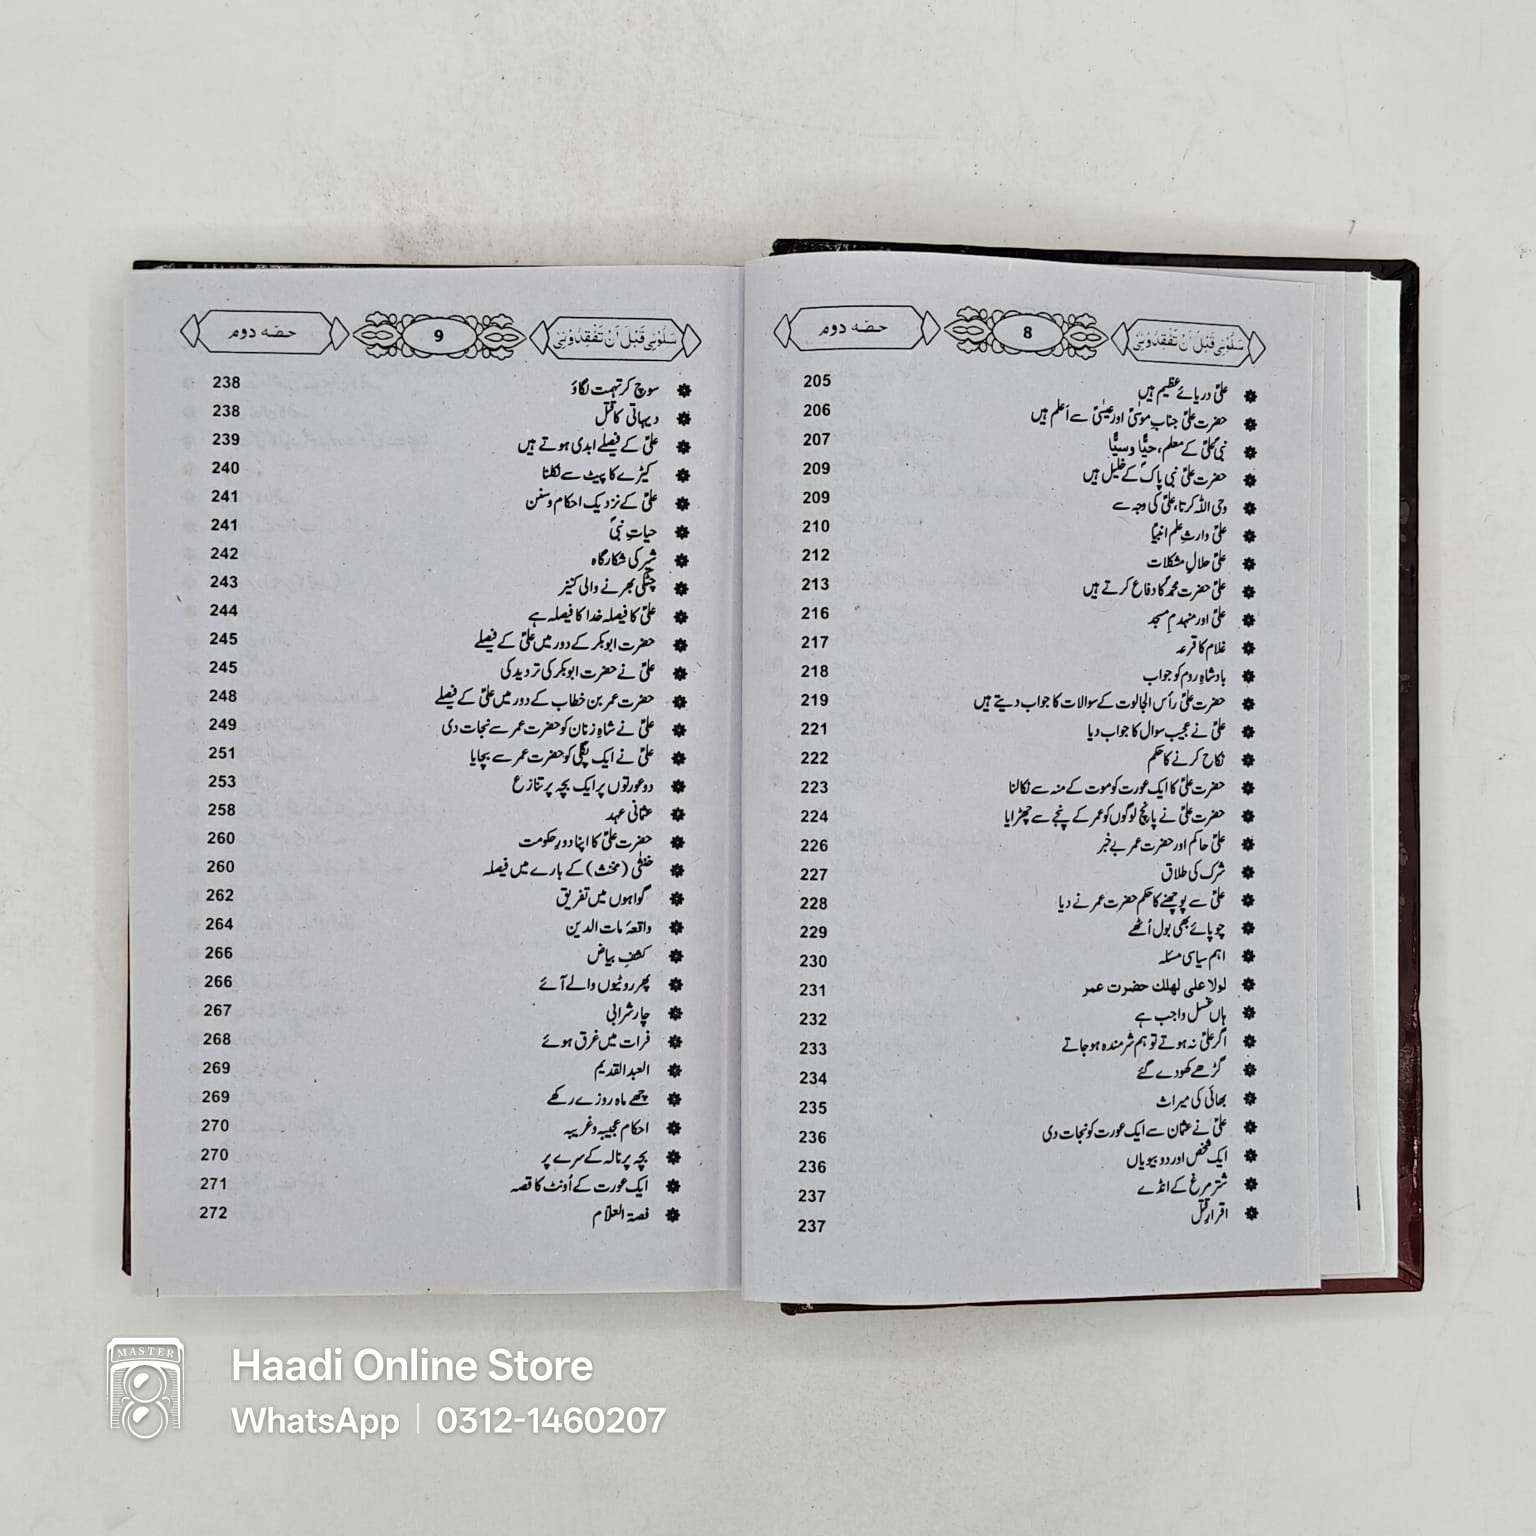 سَلُوْنِیْ قَبْلَ اَنْ تَفْقِدُوْنِیْ 8 حصّہ دوم
علیؑ دریائے عظیم ہیں 205
حضرت علیؑ جناب موسیٰؑ اور عیسیٰؑ سے اَعلم ہیں 206
نبیؐ علیؑ کے معلم، حیًّا و میتًّا 207
حضرت علیؑ نبی پاکؐ کے خلیل ہیں 209
وحی اللہ کرتا، علیؑ کی وجہ سے 209
علیؑ وارثِ علم انبیاؑ 210
علیؑ حلالِ مشکلات 212
علیؑ حضرت محمدؐ کا دفاع کرتے ہیں 213
علیؑ اور منہدم مسجد 216
غلام کا قرعہ 217
بادشاہِ روم کو جواب 218
حضرت علیؑ رأس الجالوت کے سوالات کا جواب دیتے ہیں 219
علیؑ نے عجیب سوال کا جواب دیا 221
نکاح کرنے کا حکم 222
حضرت علیؑ کا ایک عورت کو موت کے منہ سے نکالنا 223
حضرت علیؑ نے پانچ لوگوں کو عمر کے پنجے سے چھڑایا 224
علیؑ حاکم اور حضرت عمر بے خبر 226
شرک کی طلاق 227
علیؑ سے پوچھنے کا حکم حضرت عمر نے دیا 228
چوپائے بھی بول اُٹھے 229
اہم سیاسی مسئلہ 230
لولا علی لھلك حضرت عمر 231
ہاں غسل واجب ہے 232
اگر علیؑ نہ ہوتے تو ہم شرمندہ ہو جاتے 233
گڑھے کھودے گئے 234
بھائی کی میراث 235
علیؑ نے عثمان سے ایک عورت کو نجات دی 236
ایک شخص اور دو بیویاں 236
شتر مرغ کے انڈے 237
اقرارِ قتل 237
سَلُوْنِیْ قَبْلَ اَنْ تَفْقِدُوْنِیْ 9 حصّہ دوم
سوچ کر تہمت لگاؤ 238
دیہاتی کا قتل 238
علیؑ کے فیصلے ابدی ہوتے ہیں 239
کیڑے کا پیٹ سے نکلنا 240
علیؑ کے نزدیک احکام و سنن 241
حیاتِ نبیؐ 241
شیر کی شکار گاہ 242
چٹکی بھرنے والی کنیز 243
علیؑ کا فیصلہ خدا کا فیصلہ ہے 244
حضرت ابوبکر کے دور میں علیؑ کے فیصلے 245
علیؑ نے حضرت ابوبکر کی تردید کی 245
حضرت عمر بن خطاب کے دور میں علیؑ کے فیصلے 248
علیؑ نے شاہِ زنان کو حضرت عمر سے نجات دی 249
علیؑ نے ایک پگلی کو حضرت عمر سے بچایا 251
دو عورتوں پر ایک بچہ پر تنازع 253
عثمانی عہد 258
حضرت علیؑ کا اپنا دورِ حکومت 260
خنثٰی (مخنث) کے بارے میں فیصلہ 260
گواہوں میں تفریق 262
واقعۂ مات الدین 264
کشفِ بیاض 266
پھر روٹیوں والے آئے 266
چار شرابی 267
فرات میں غرق ہوئے 268
العبد القدیم 269
چھے ماہ روزے رکھے 269
احکام عجیبہ و غریبہ 270
بچہ پرنالہ کے سرے پر 270
ایک عورت کے اُونٹ کا قصہ 271
قصۃ الغلام 272
MASTER
Haadi Online Store
WhatsApp | 0312-1460207